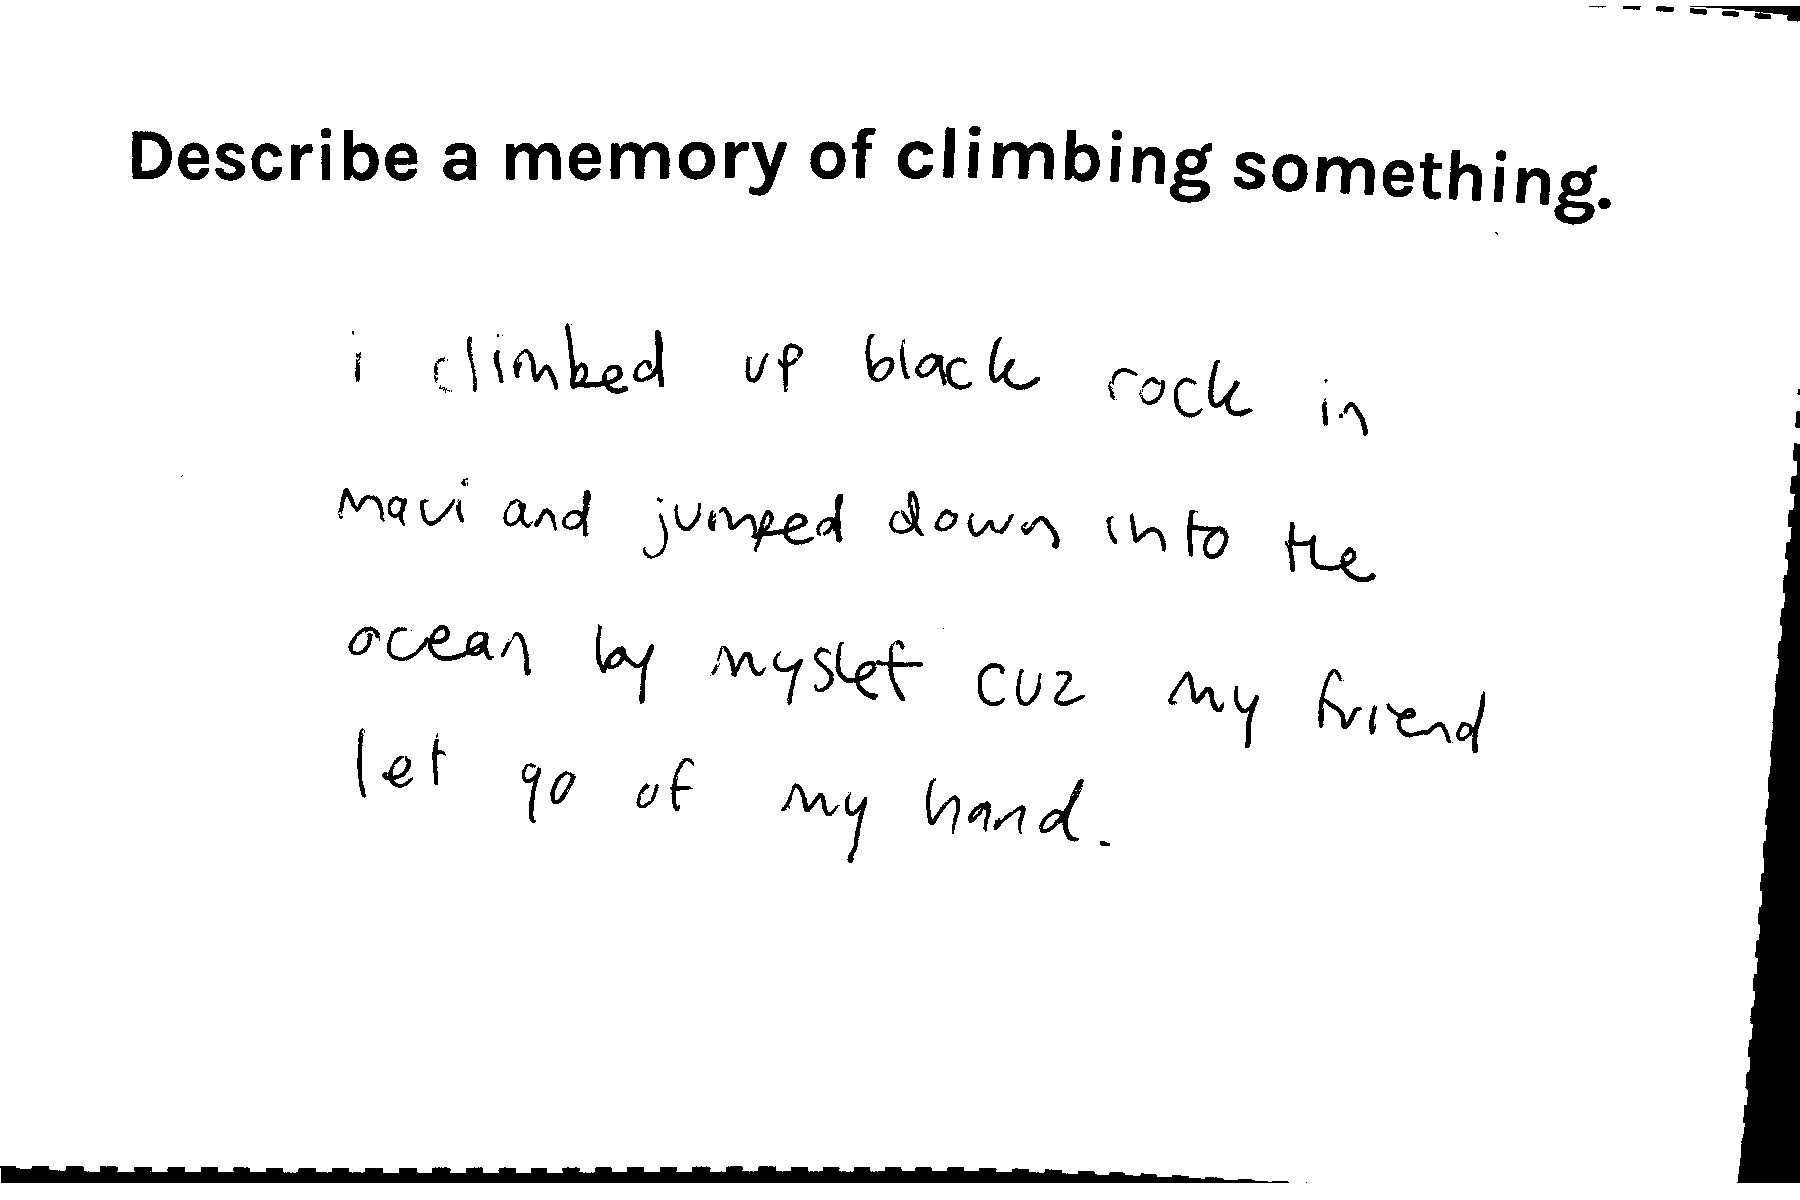 Describe a memory of climbing something.
i climbed up black rock in
maui and jumped down into the
ocean by myslef cuz my friend
let go of my hand.